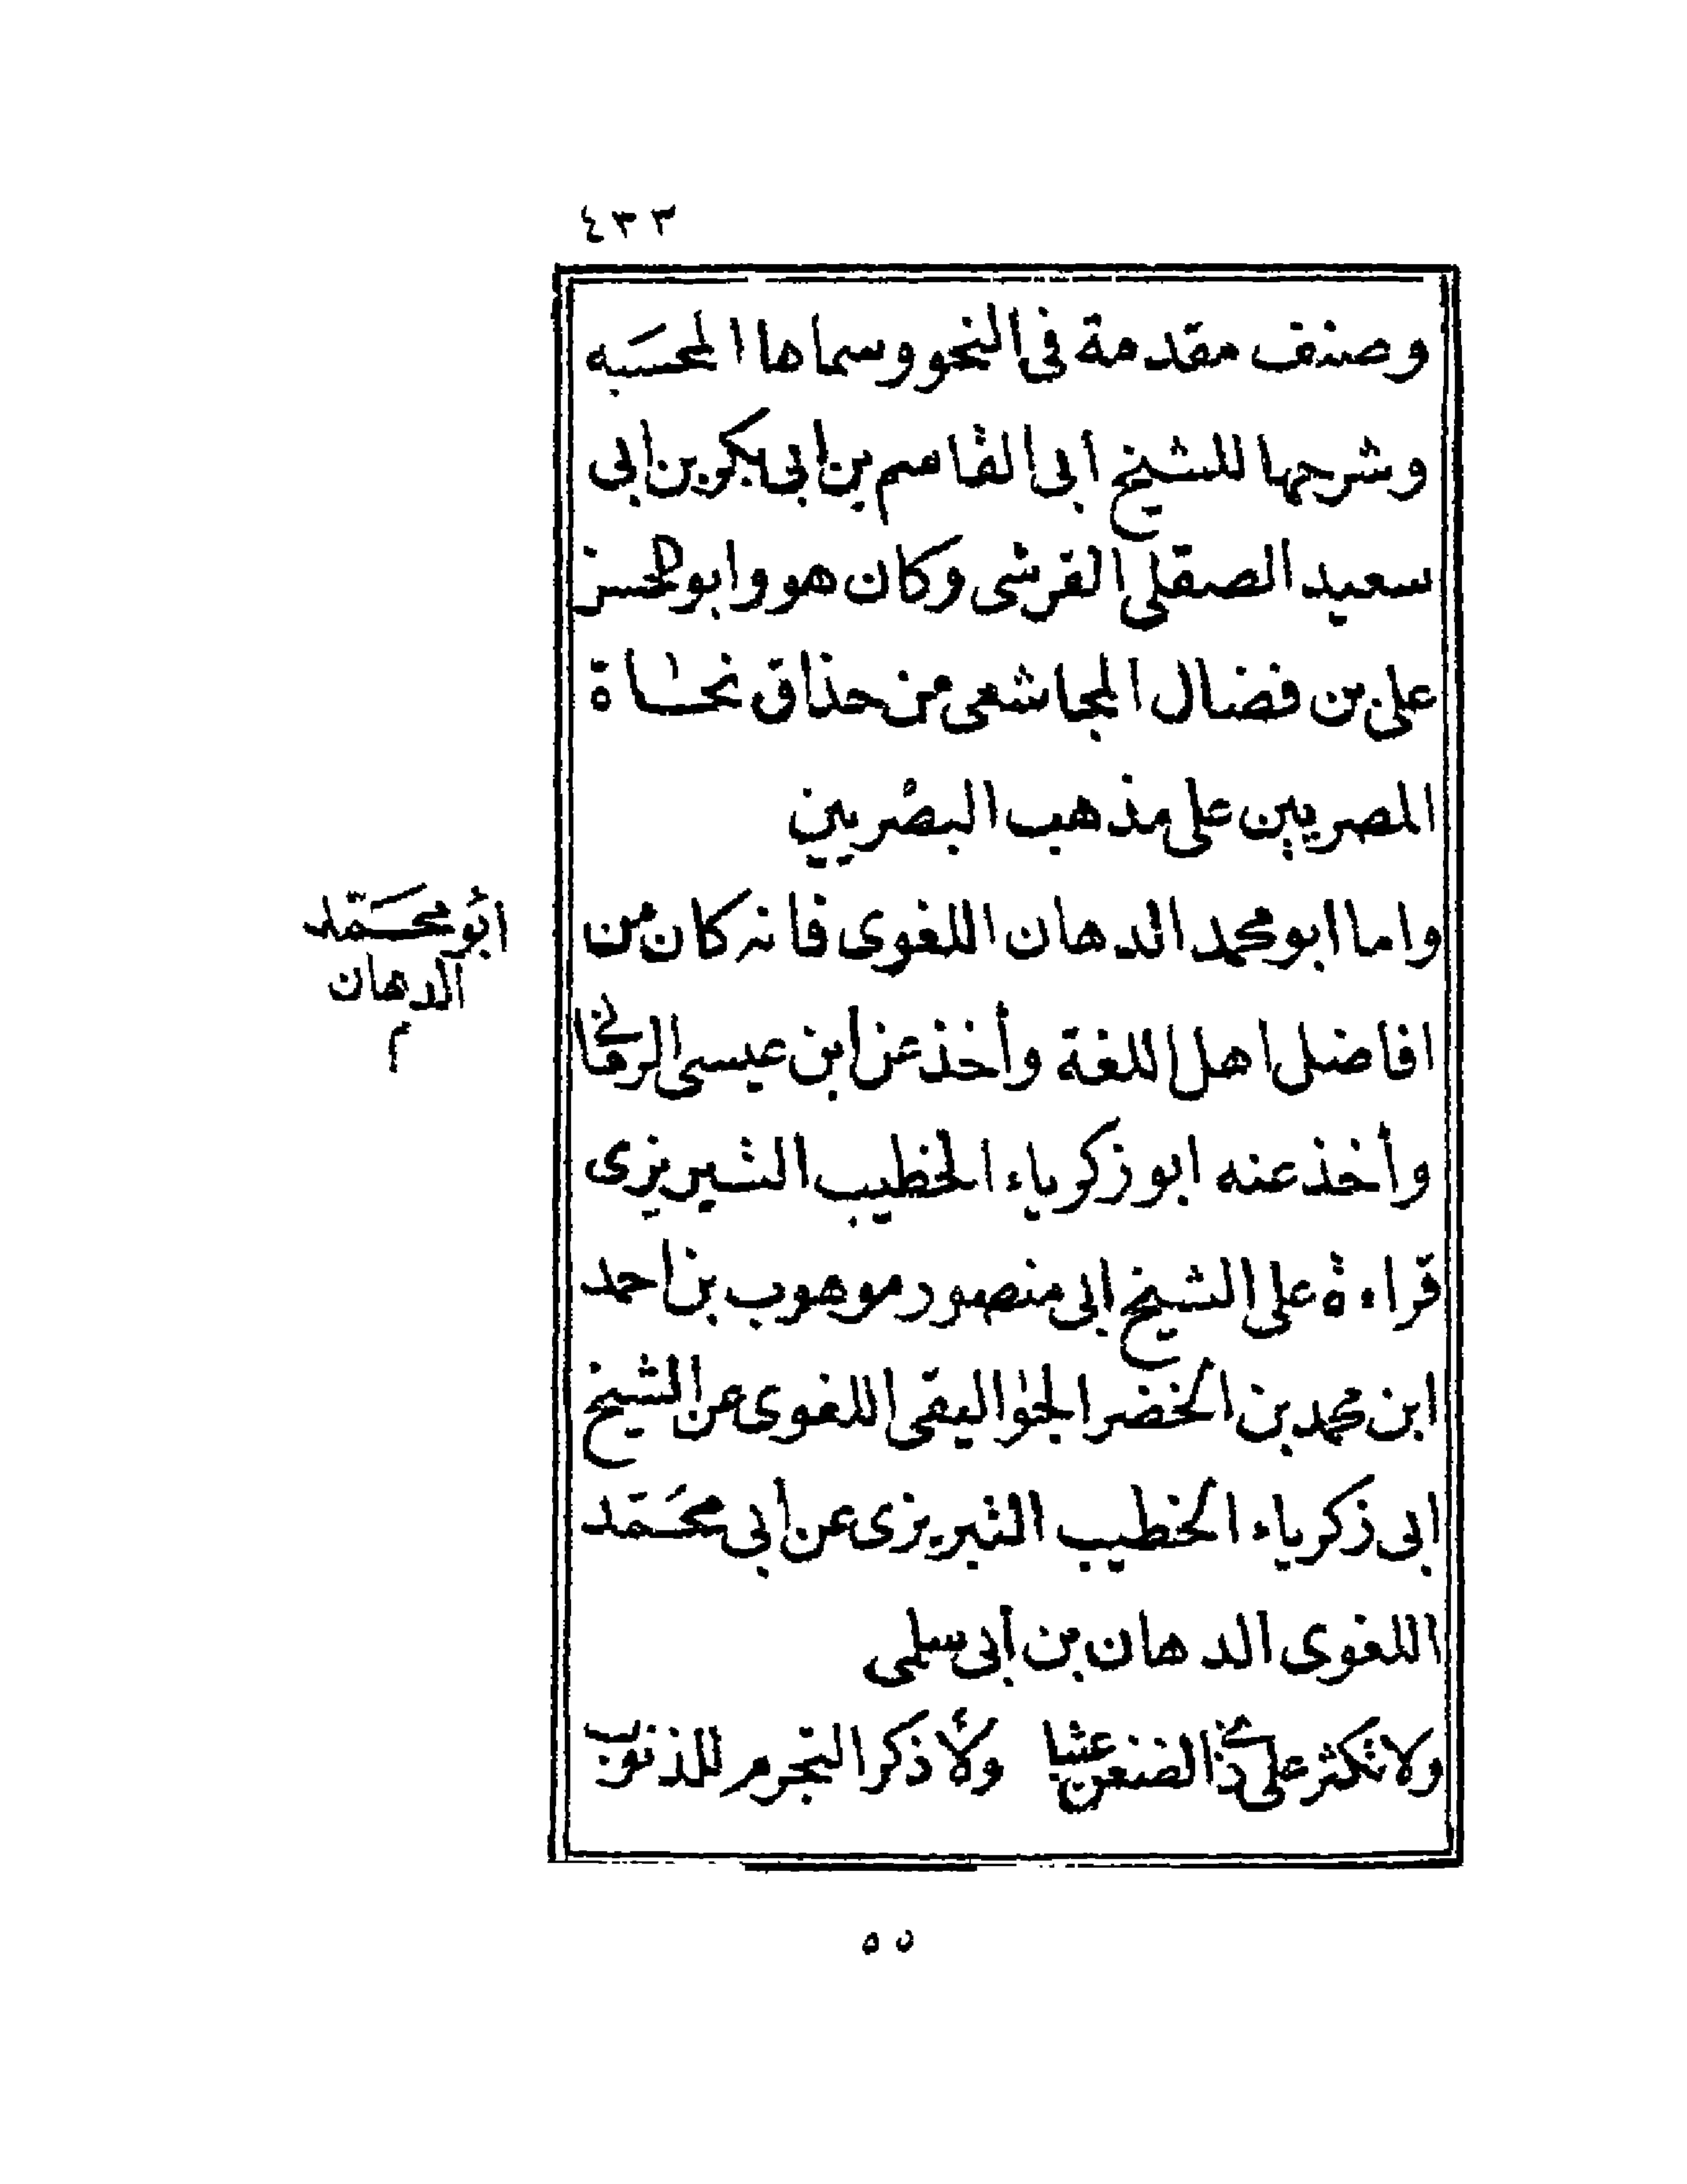 ٤٣٣
وصنف مقدمة فى النحو وسماها المحسَبه
وشرحها للشيخ ابى القاسم بن ابى بكر بن ابى
سعيد الصقلى القرشى وكان هو وابو الحسن
على بن فضال المجاشعى من حذاق نحاة
المصريين على مذهب البصْريين
واما ابو محمد الدهان اللغوى فانه كان من
ابُو محَمّد
الدهان
م
افاضل اهل اللغة وأخذ عن ابن عيسى الرمانى
وأخذ عنه ابو زكرياء الخطيب التبريزى
قراءة على الشيخ ابى منصور موهوب بن احمد
ابن محمد بن الخضر الجواليقى اللغوى عن الشيخ
ابى زكرياء الخطيب التبريزى عن أبى محَمّد
اللغوى الدهان بن أبى سلمى
ولا تكثر على ذى الضغن عتبا ولا ذكر التجرم للذنوب
٥٥